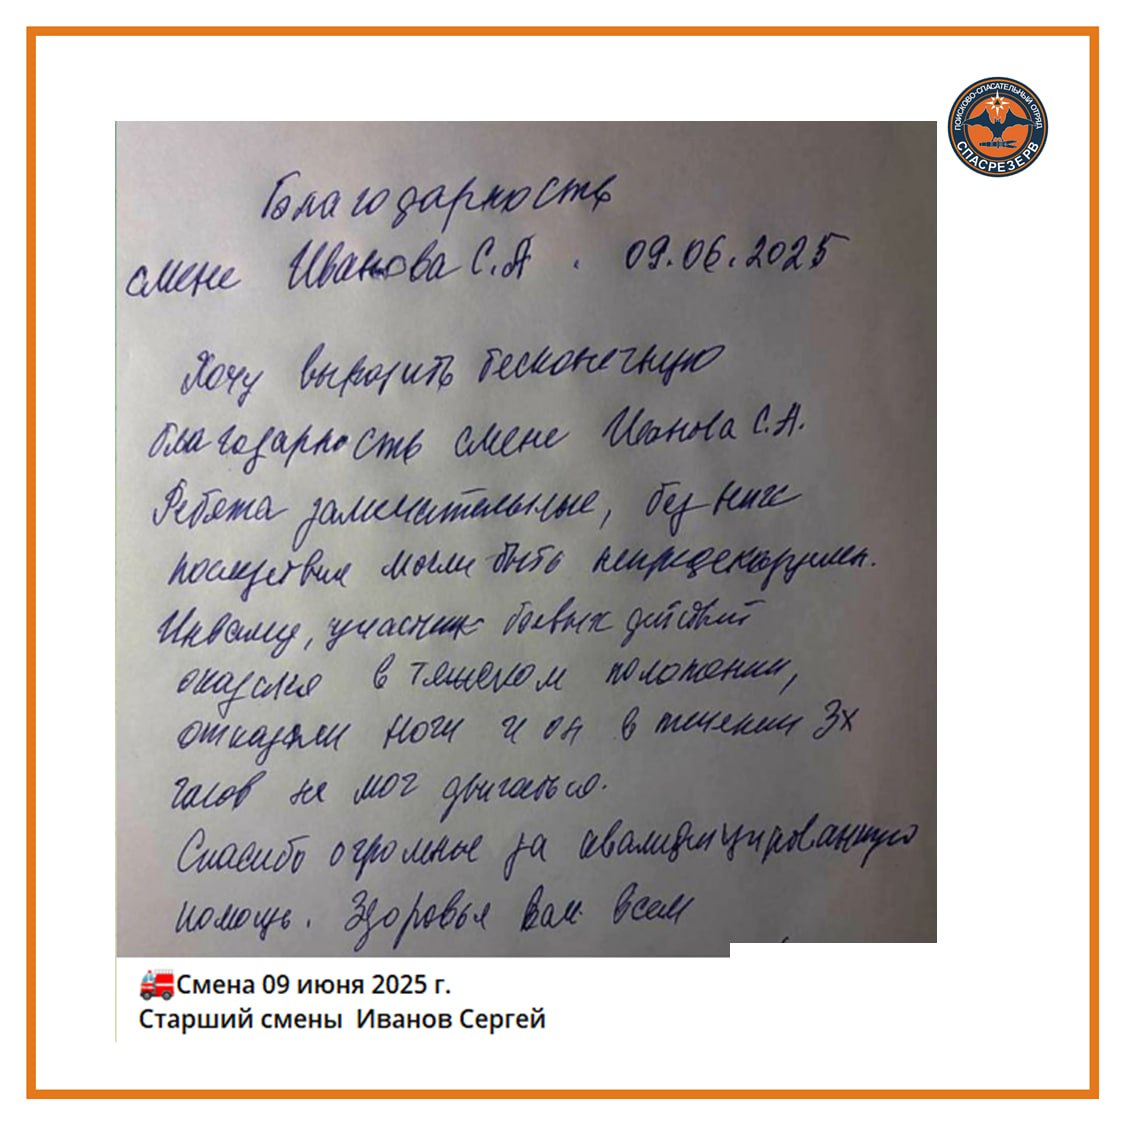 ПОИСКОВО-СПАСАТЕЛЬНЫЙ ОТРЯД
СПАСРЕЗЕРВ
Благодарность
смене Иванова С.А. 09.06.2025
Хочу выразить бесконечную
благодарность смене Иванова С.А.
Ребята замечательные, без них
последствия могли быть
Инвалид, участник боевых действий
оказался в тяжелом положении,
отказали ноги и он в течении 3х
часов не мог двигаться.
Спасибо огромное за квалифицированную
помощь. Здоровья Вам всем
Смена 09 июня 2025 г.
Старший смены Иванов Сергей